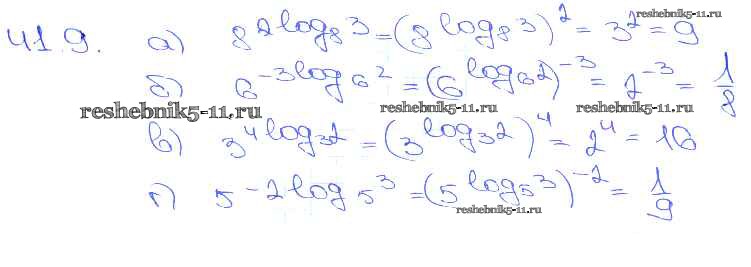 41.9. а) 8^{2 log_8 3} = (8^{log_8 3})^2 = 3^2 = 9 reshebnik5-11.ru
б) 6^{-3 log_6 2} = (6^{log_6 2})^{-3} = 2^{-3} = 1/8
reshebnik5-11.ru reshebnik5-11.ru reshebnik5-11.ru
в) 3^{4 log_3 2} = (3^{log_3 2})^4 = 2^4 = 16
г) 5^{-2 log_5 3} = (5^{log_5 3})^{-2} = 1/9
reshebnik5-11.ru